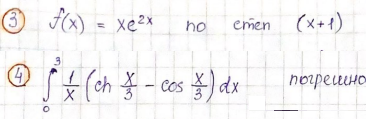 ③ f(x) = xe^{2x} по степ (x+1)
④ ∫_0^3 1/x (ch x/3 − cos x/3) dx погрешно